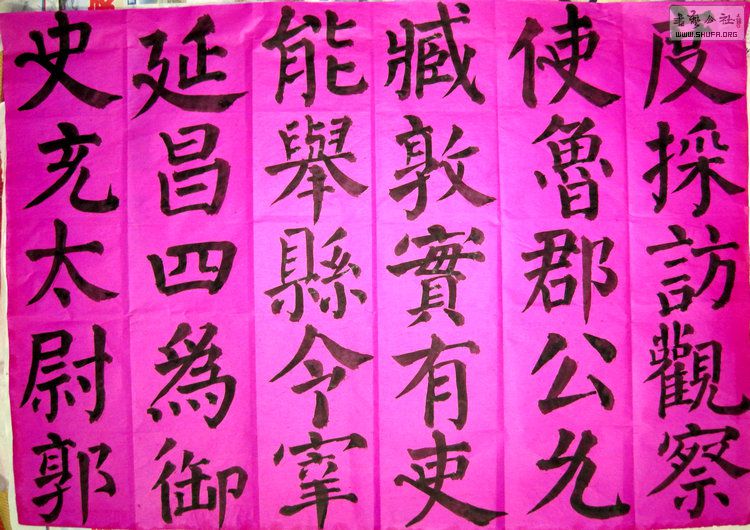 度採訪觀察
使魯郡公允
臧敦實有吏
能舉縣令宰
延昌四為御
史充太尉郭
書藝公社
WWW.SHUFA.ORG